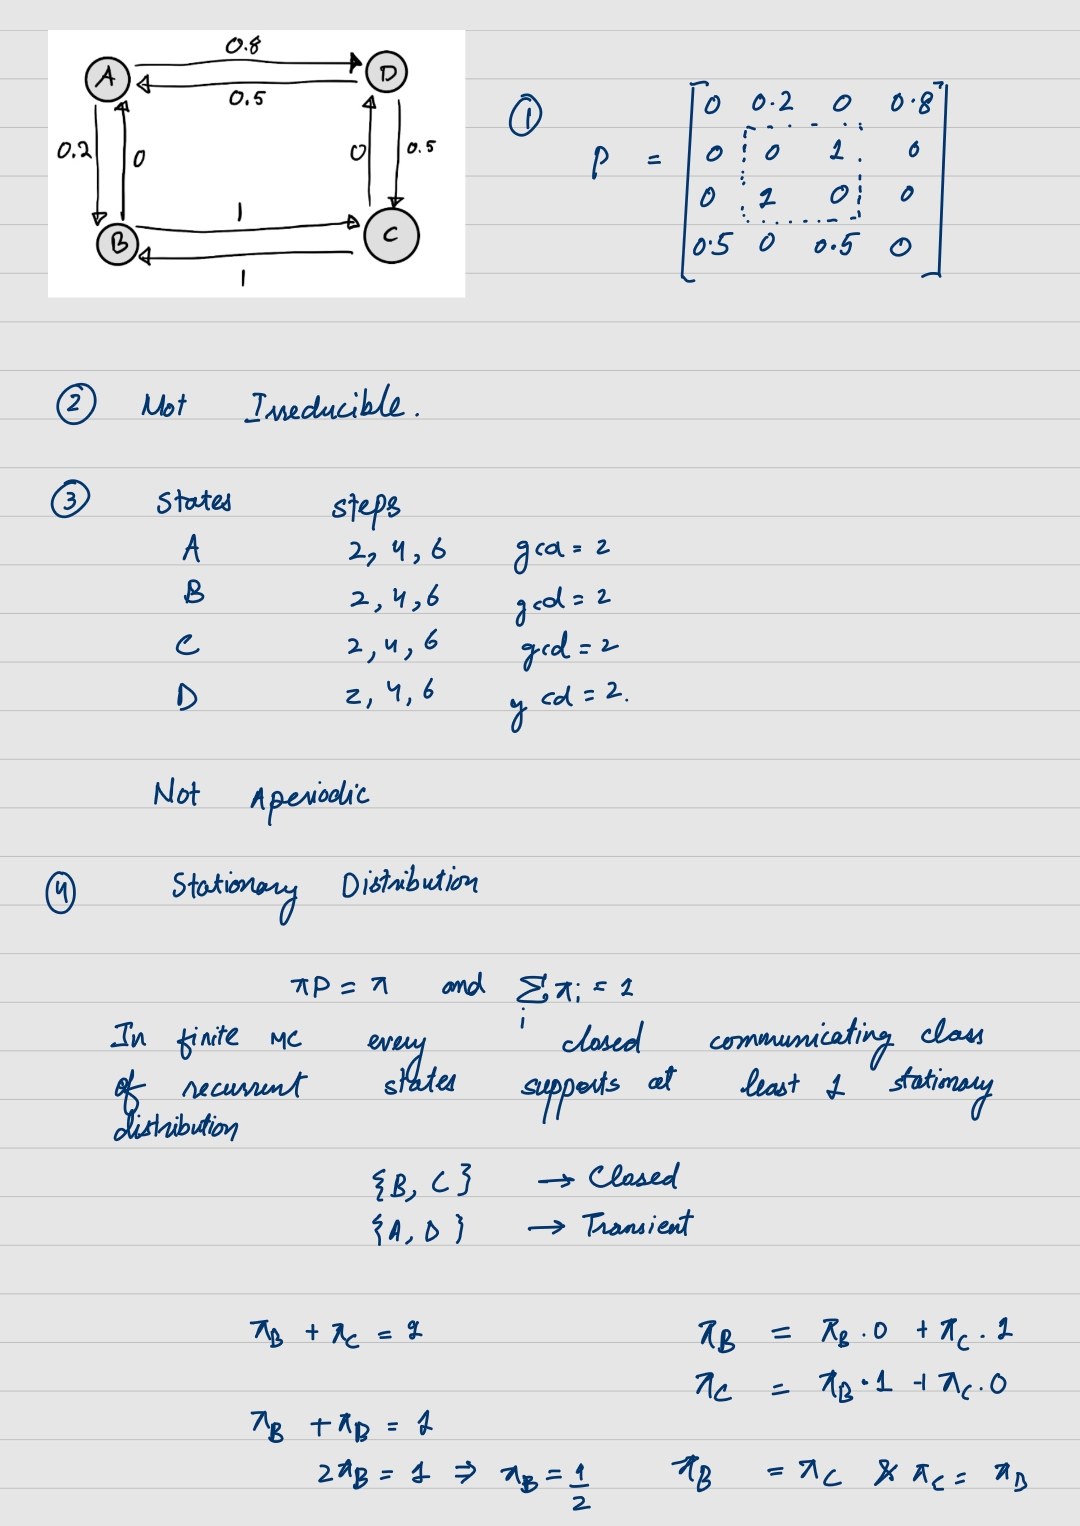 0.8
A D
0.5
0.2 0 0 0.5
1
B C
1
① P = [0 0.2 0 0.8
0 0 1 0
0 1 0 0
0.5 0 0.5 0]
② Not Irreducible.
③ States steps
A 2, 4, 6 gcd = 2
B 2, 4, 6 gcd = 2
C 2, 4, 6 gcd = 2
D 2, 4, 6 gcd = 2.
Not Aperiodic
④ Stationary Distribution
πP = π and Σ_i π_i = 1
In finite MC every closed communicating class
of recurrent states supports at least 1 stationary
distribution
{B, C} → Closed
{A, D} → Transient
π_B + π_C = 1 π_B = π_B . 0 + π_C . 1
π_C = π_B . 1 + π_C . 0
π_B + π_B = 1
2π_B = 1 ⇒ π_B = 1/2 π_B = π_C & π_C = π_B